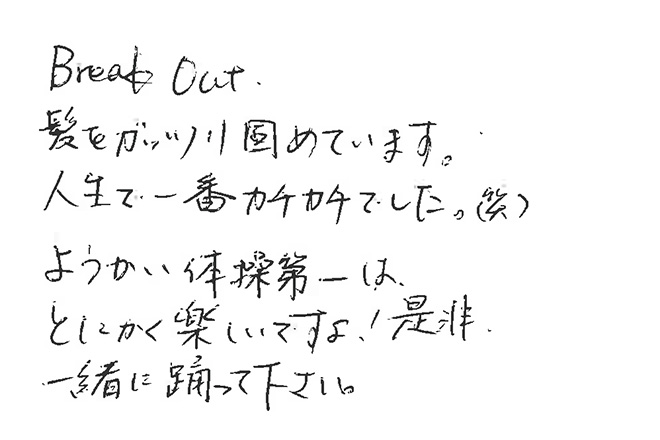 Break Out.
髪をガッツリ固めています。
人生で一番カチカチでした。(笑)
ようかい体操第一は、
とにかく楽しいですよ!是非
一緒に踊って下さい。